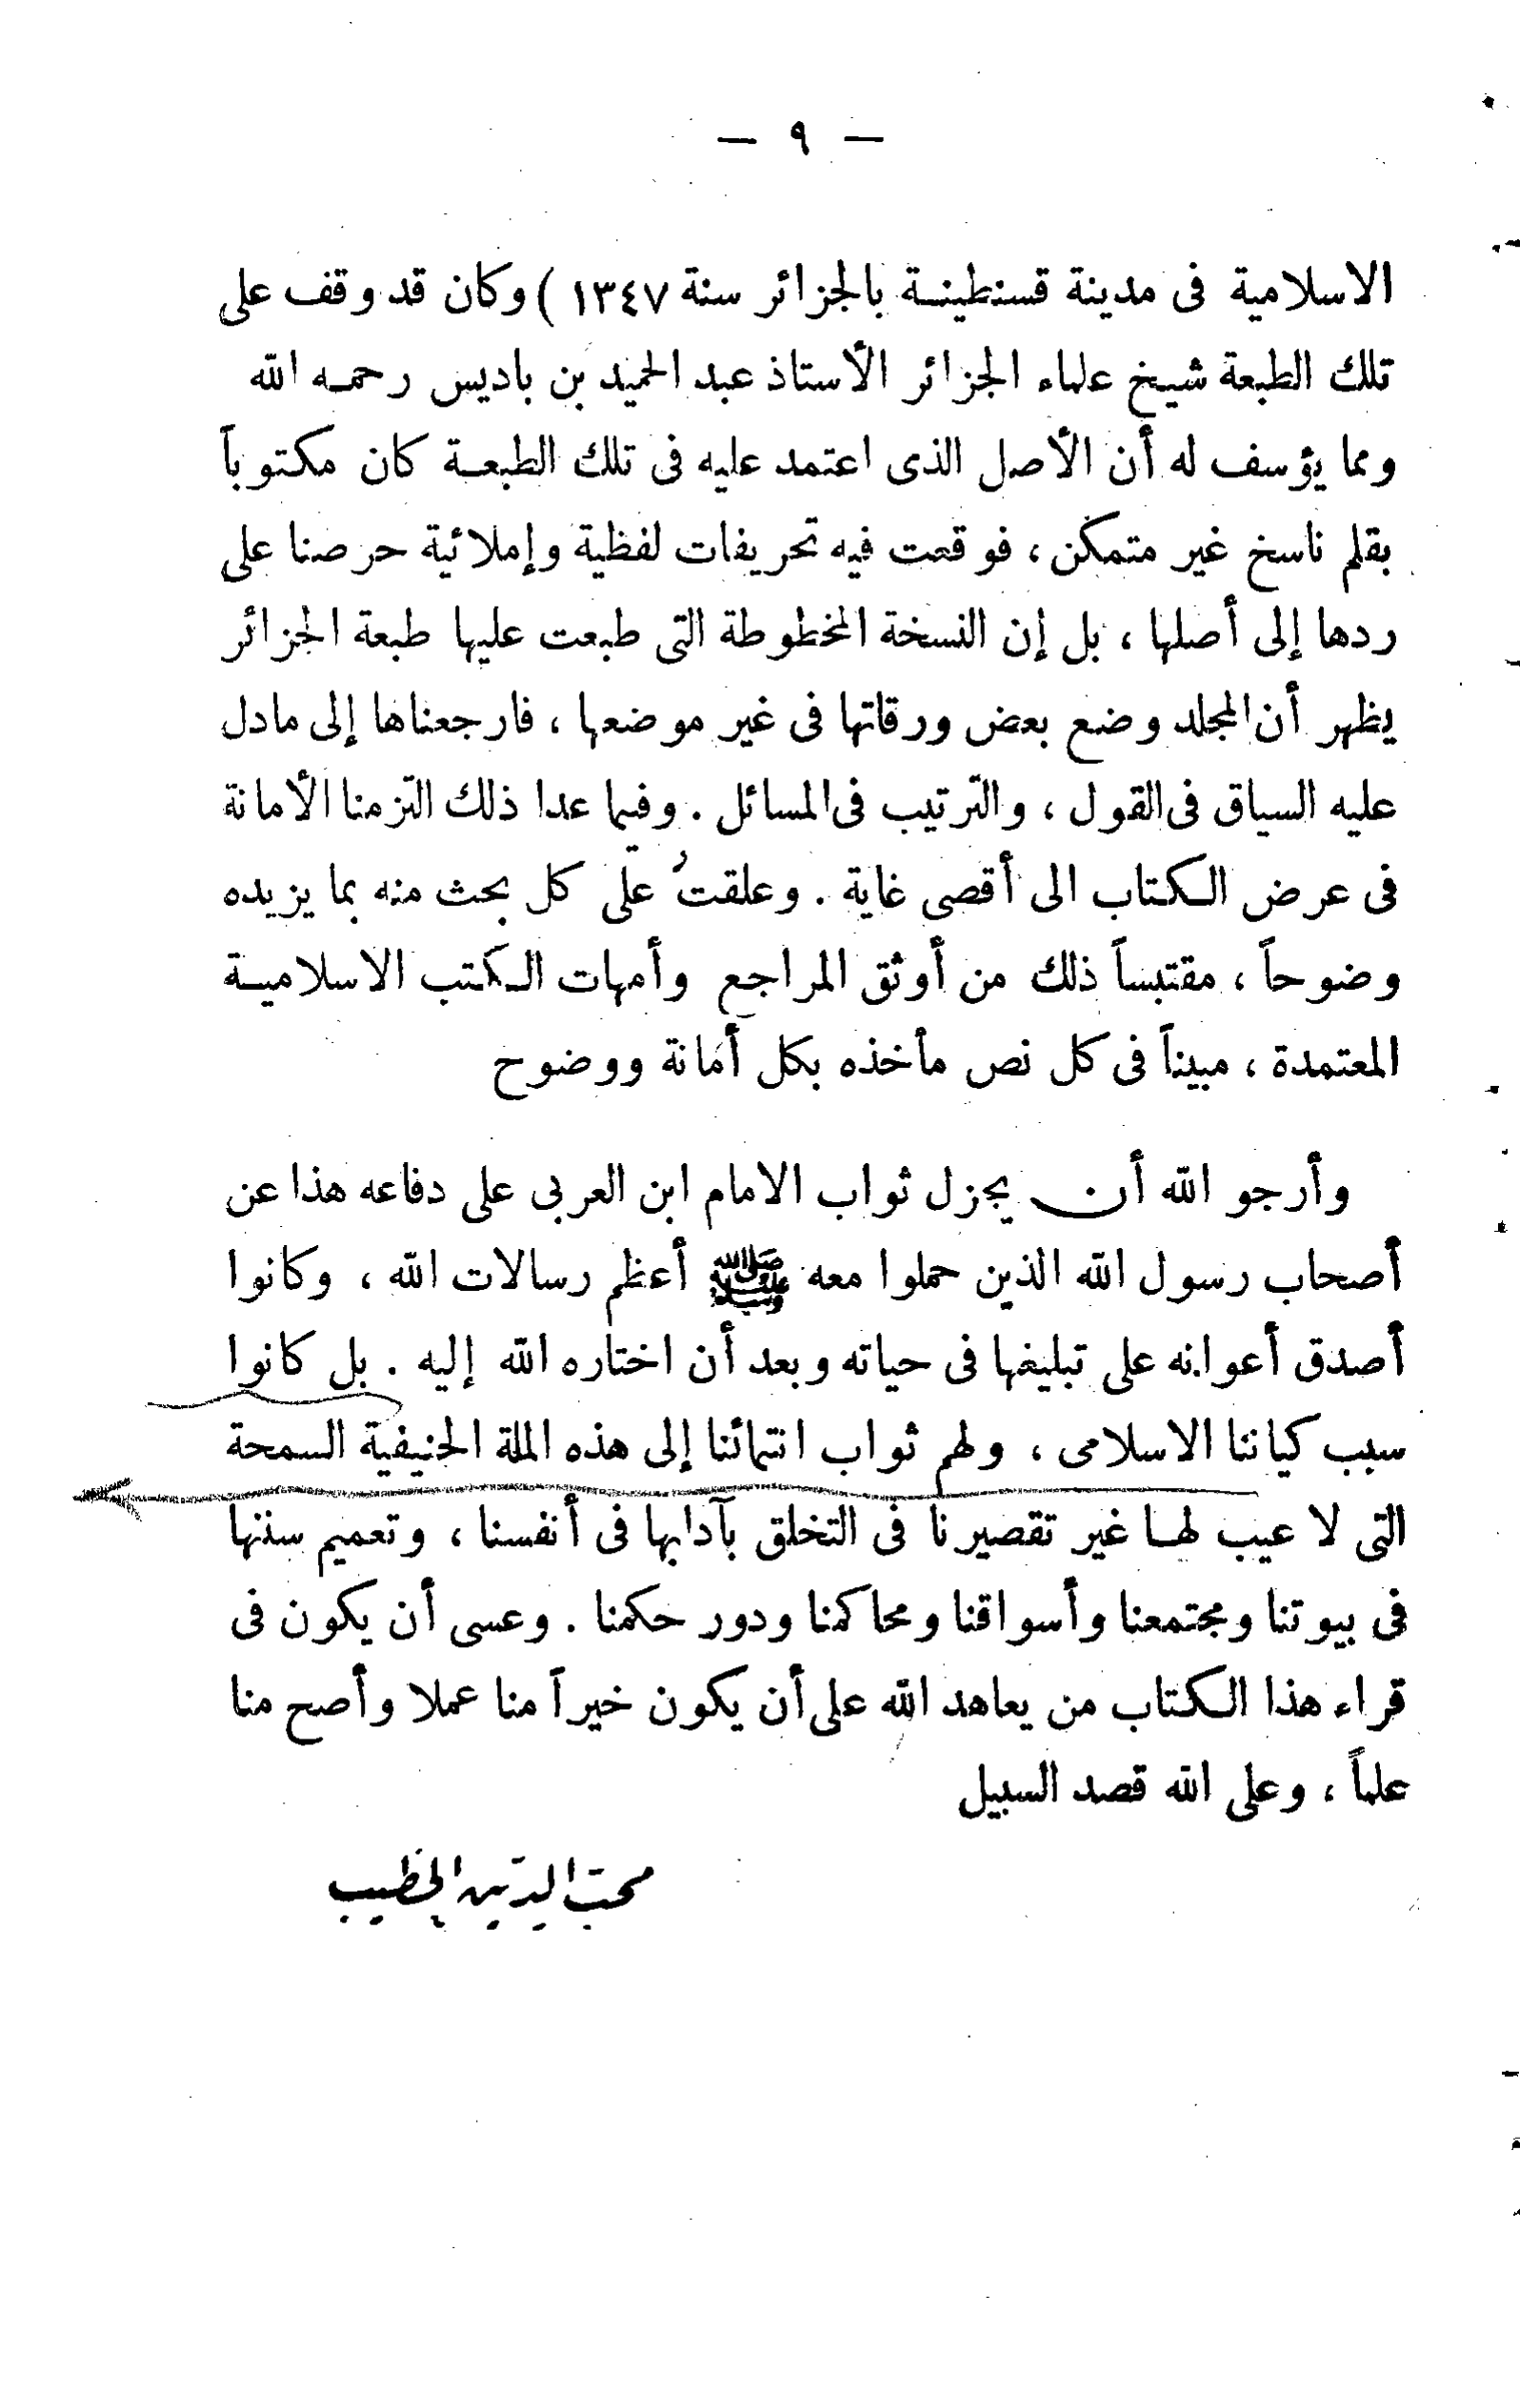 — ٩ —
الاسلامية فى مدينة قسنطينـة بالجزائر سنة ١٣٤٧ ) وكان قد وقف على
تلك الطبعة شيـخ علماء الجزائر الأستاذ عبد الحميد بن باديس رحمـه الله
ومما يؤسف له أن الأصل الذى اعتمد عليه فى تلك الطبعـة كان مكتوباً
بقلم ناسخ غير متمكن ، فوقعت فيه تحريفات لفظية وإملائية حرصنا على
ردها إلى أصلها ، بل إن النسخة المخطوطة التى طبعت عليها طبعة الجزائر
يظهر أن المجلد وضع بعض ورقاتها فى غير موضعها ، فارجعناها إلى مادل
عليه السياق فى القول ، والترتيب فى المسائل . وفيما عدا ذلك التزمنا الأمانة
فى عرض الـكتاب الى أقصى غاية . وعلقتُ على كل بحث منه بما يزيده
وضوحاً ، مقتبساً ذلك من أوثق المراجع وأمهات الـكتب الاسلاميـة
المعتمدة ، مبيناً فى كل نص مأخذه بكل أمانة ووضوح
وأرجو الله أن يجزل ثواب الامام ابن العربى على دفاعه هذا عن
أصحاب رسول الله الذين حملوا معه ﷺ أعظم رسالات الله ، وكانوا
أصدق أعوانه على تبليغها فى حياته وبعد أن اختاره الله إليه . بل كانوا
سبب كياننا الاسلامى ، ولهم ثواب انتمائنا إلى هذه الملة الحنيفية السمحة
التى لا عيب لهـا غير تقصيرنا فى التخلق بآدابها فى أنفسنا ، وتعميم سننها
فى بيوتنا ومجتمعنا وأسواقنا ومحاكمنا ودور حكمنا . وعسى أن يكون فى
قراء هذا الـكتاب من يعاهد الله على أن يكون خيراً منا عملا وأصح منا
علماً ، وعلى الله قصد السبيل
محب الدين الخطيب